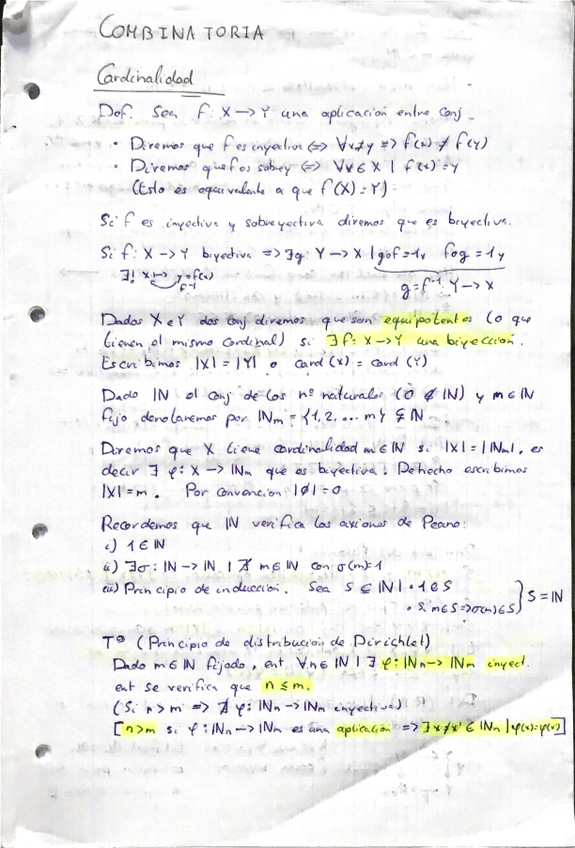 COMBINATORIA
Cardinalidad
Def. Sea f: X → Y una aplicación entre conj.
• Diremos que f es inyectiva ⟺ ∀x≠y ⟹ f(x) ≠ f(y)
• Diremos que f es sobrey ⟺ ∀x∈X | f(x)=y
(Esto es equivalente a que f(X)=Y)
Si f es inyectiva y sobreyectiva diremos que es biyectiva.
Si f: X → Y biyectiva ⟹ ∃g: Y → X | g∘f=1x f∘g=1y
∃! x ↦ y=f(x)
f⁻¹
g=f⁻¹: Y → X
Dados X e Y dos conj diremos que son equipotentes (o que
tienen el mismo cardinal) si ∃ f: X → Y una biyección.
Escribimos |X| = |Y| o card (X) = card (Y)
Dado IN el conj de los nº naturales (0 ∉ IN) y m ∈ IN
fijo denotaremos por INm = {1, 2, ... m} ⊊ IN.
Diremos que X tiene cardinalidad m ∈ IN si |X| = |INm|, es
decir ∃ φ: X → INm que es biyectiva. De hecho escribimos
|X| = m. Por convención |∅| = 0
Recordemos que IN verifica los axiomas de Peano:
i) 1 ∈ IN
ii) ∃σ: IN → IN | ∄ m ∈ IN con σ(m)=1
iii) Principio de inducción. Sea S ⊆ IN | • 1 ∈ S
• Si m∈S ⟹ σ(m)∈S } S = IN
Tª (Principio de distribución de Dirichlet)
Dado m ∈ IN fijado, ent. ∀n ∈ IN | ∃ φ: INn → INm inyect.
ent se verifica que n ≤ m.
(Si n > m ⟹ ∄ φ: INn → INm inyectiva)
[n>m si φ: INn → INm es una aplicación ⟹ ∃ x≠x' ∈ INn | φ(x)=φ(x')]